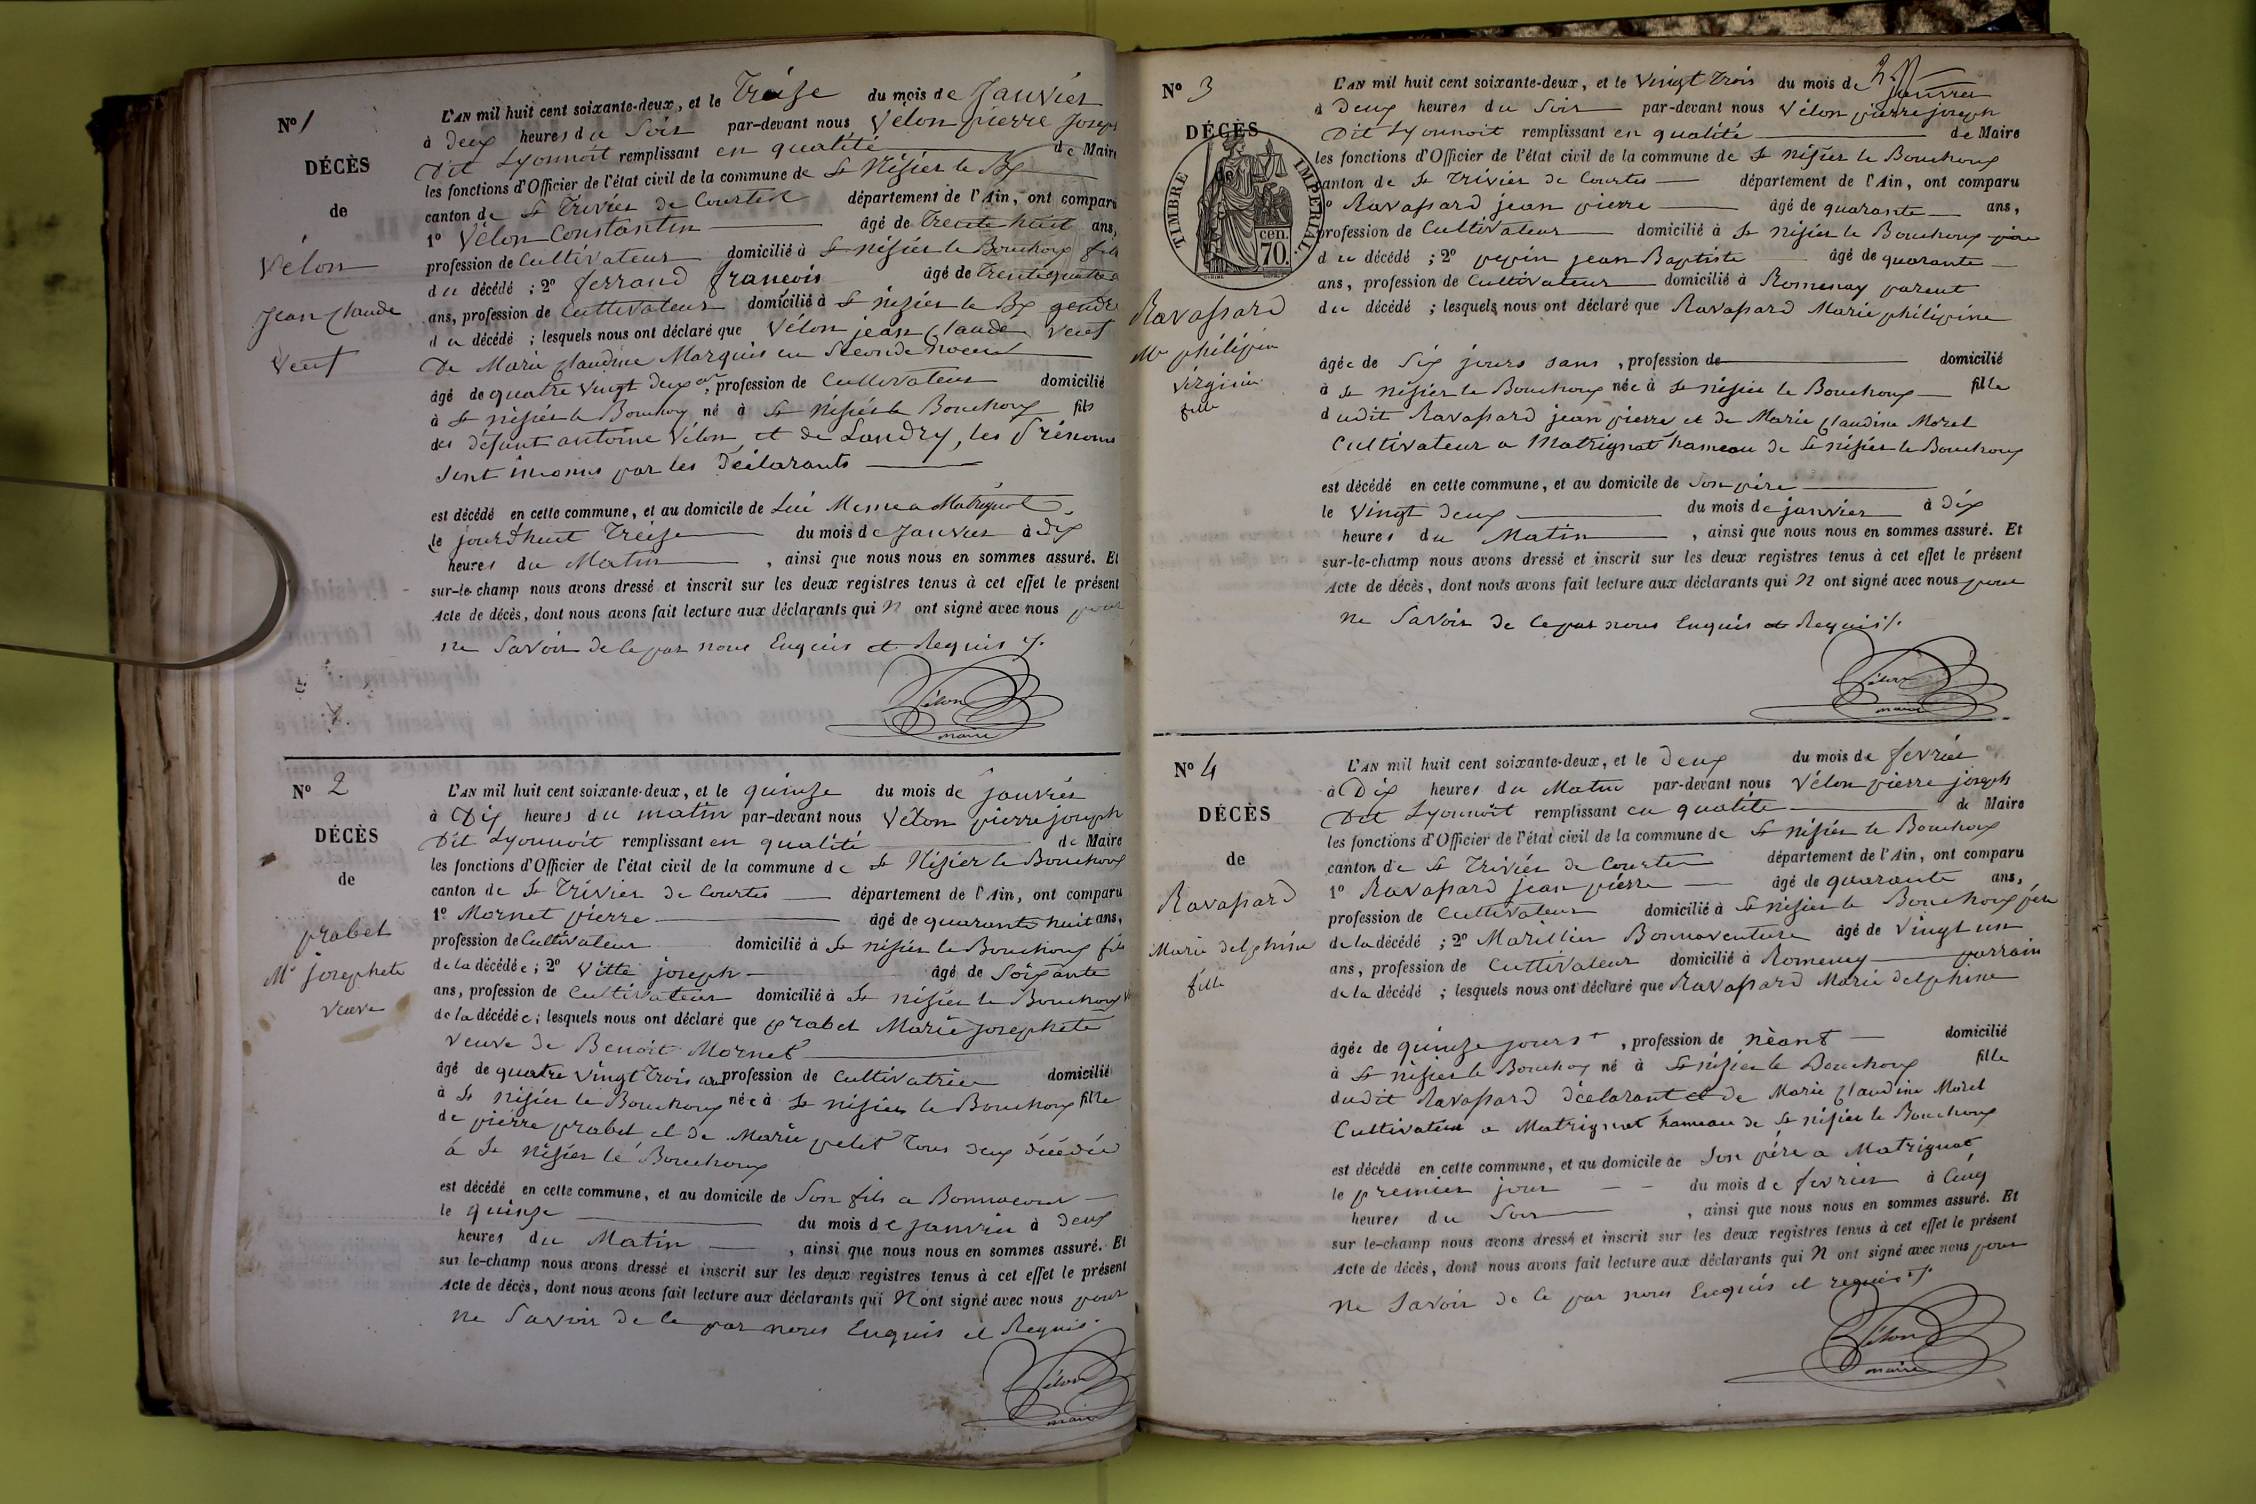 No 1
DÉCÈS
de
Vélon
Jean Claude
veuf
L'AN mil huit cent soixante-deux, et le Treize du mois de Janvier
à deux heures du Soir par-devant nous Vélon pierre Joseph
Dit Lyonnoit remplissant en qualité de Maire
les fonctions d'Officier de l'état civil de la commune de St Nisier le Bx
canton de St Trivier de Courtes département de l'Ain, ont comparu
1o Vélon Constantin âgé de Trente huit ans,
profession de Cultivateur domicilié à St nisier le Bouchoux fils
du décédé ; 2o ferrand francois âgé de Trente quatre
ans, profession de Cultivateur domicilié à St nizier le Bx gendre
du décédé ; lesquels nous ont déclaré que Vélon jean Claude veuf
De Marie Claudine Marquis en Seconde noces
âgé de quatre vingt deux an, profession de Cultivateur domicilié
à St nisier le Bouchoux né à St Nisier le Bouchoux fils
des défunt antoine Vélon et de Landry, les Prénoms
Sont inconus par les Déclarants
est décédé en cette commune, et au domicile de Lui Meme a Matrignat
le jourd'huit Treize du mois de Janvier à dix
heures du Matin, ainsi que nous nous en sommes assuré. Et
sur-le-champ nous avons dressé et inscrit sur les deux registres tenus à cet effet le présent
Acte de décès, dont nous avons fait lecture aux déclarants qui N ont signé avec nous pour
ne Savoir de ce par nous Enquis et Requis
Vélon
maire
No 2
DÉCÈS
de
prabel
Mie josephete
veuve
L'AN mil huit cent soixante-deux, et le quinze du mois de janvier
à Dix heures du matin par-devant nous Vélon pierre joseph
Dit Lyonnoit remplissant en qualité de Maire
les fonctions d'Officier de l'état civil de la commune de St Nisier le Bouchoux
canton de St Trivier de Courtes département de l'Ain, ont comparu
1o Mornet pierre âgé de quarante huit ans,
profession de Cultivateur domicilié à St nisier le Bouchoux fils
de la décédée ; 2o Vitte joseph âgé de Soixante
ans, profession de Cultivateur domicilié à St nisier le Bouchoux
de la décédée ; lesquels nous ont déclaré que prabel Marie josephete
veuve de Benoit Mornet
âgé de quatre vingt trois an profession de Cultivatrice domicilié
à St nisier le Bouchoux née à St nisier le Bouchoux fille
de pierre prabel et de Marie petit Tous deux décédés
à St nisier le Bouchoux
est décédé en cette commune, et au domicile de Son fils a Bonnacour
le quinze du mois de janvier à Deux
heures du Matin, ainsi que nous nous en sommes assuré. Et
sur le-champ nous avons dressé et inscrit sur les deux registres tenus à cet effet le présent
Acte de décès, dont nous avons fait lecture aux déclarants qui N ont signé avec nous pour
ne Savoir de ce par nous Enquis et Requis.
Vélon
maire
No 3
DÉCÈS
de
TIMBRE IMPÉRIAL.
70 cen.
Ravassard
Mie philipin
Virginie
fille
L'AN mil huit cent soixante-deux, et le Vingt Trois du mois de Janvier
à Deux heures du Soir par-devant nous Vélon pierre joseph
Dit Lyonnoit remplissant en qualité de Maire
les fonctions d'Officier de l'état civil de la commune de St nisier le Bouchoux
canton de St Trivier de Courtes département de l'Ain, ont comparu
1o Ravassard jean pierre âgé de quarante ans,
profession de Cultivateur domicilié à St nisier le Bouchoux père
du décédé ; 2o pepin jean Baptiste âgé de quarante
ans, profession de Cultivateur domicilié à Romenay parent
du décédé ; lesquels nous ont déclaré que Ravassard Marie philipine
âgée de Six jours sans, profession de domicilié
à St nisier le Bouchoux née à St nisier le Bouchoux fille
dudit Ravassard jean pierre et de Marie Claudine Morel
Cultivateur a Matrignat hameau de St nisier le Bouchoux
est décédé en cette commune, et au domicile de Son père
le Vingt deux du mois de janvier à dix
heures du Matin, ainsi que nous nous en sommes assuré. Et
sur-le-champ nous avons dressé et inscrit sur les deux registres tenus à cet effet le présent
Acte de décès, dont nous avons fait lecture aux déclarants qui N ont signé avec nous pour
ne Savoir de ce par nous Enquis et Requis
Vélon
maire
No 4
DÉCÈS
de
Ravassard
Marie delphine
fille
L'AN mil huit cent soixante-deux, et le deux du mois de fevrier
à Dix heures du Matin par-devant nous Vélon pierre joseph
Dit Lyonnoit remplissant en qualité de Maire
les fonctions d'Officier de l'état civil de la commune de St nisier le Bouchoux
canton de St Trivier de Courtes département de l'Ain, ont comparu
1o Ravassard jean pierre âgé de quarante ans,
profession de Cultivateur domicilié à St nisier le Bouchoux père
de la décédé ; 2o Marillier Bonnaventure âgé de Vingt un
ans, profession de Cultivateur domicilié à Romenay parrain
de la décédé ; lesquels nous ont déclaré que Ravassard Marie delphine
âgée de quinze jours, profession de néant domicilié
à St nisier le Bouchoux né à St nisier le Bouchoux fille
dudit Ravassard déclarant et de Marie Claudine Morel
Cultivateur a Matrignat hameau de St nisier le Bouchoux
est décédé en cette commune, et au domicile de Son père a Matrignat
le premier jour du mois de fevrier à Cinq
heures du Soir, ainsi que nous nous en sommes assuré. Et
sur le-champ nous avons dressé et inscrit sur les deux registres tenus à cet effet le présent
Acte de décès, dont nous avons fait lecture aux déclarants qui N ont signé avec nous pour
ne Savoir de ce par nous Enquis et requis
Vélon
maire